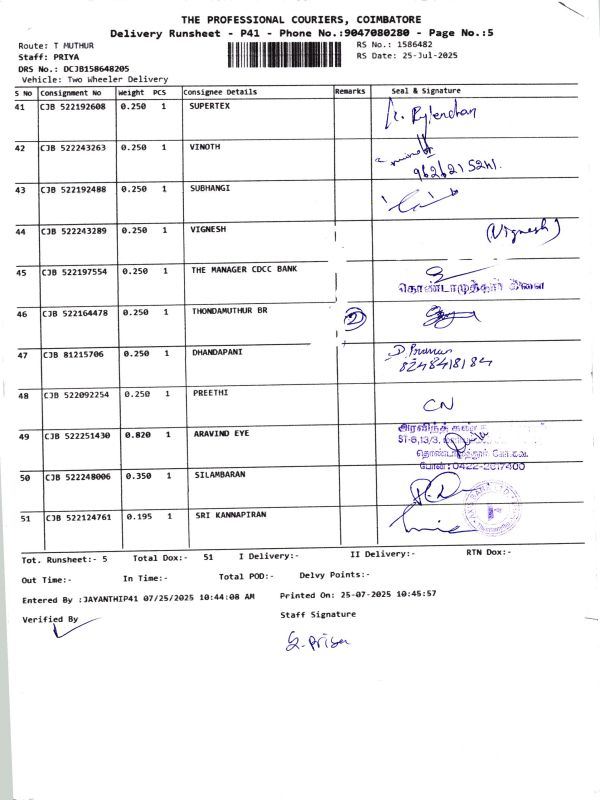 THE PROFESSIONAL COURIERS, COIMBATORE
Delivery Runsheet - P41 - Phone No.:9047080280 - Page No.:5
Route: T MUTHUR RS No.: 1586482
Staff: PRIYA RS Date: 25-Jul-2025
DRS No.: DCJB158648205
Vehicle: Two Wheeler Delivery
S No Consignment No Weight PCS Consignee Details Remarks Seal & Signature
41 CJB 522192608 0.250 1 SUPERTEX
42 CJB 522243263 0.250 1 VINOTH
9626215241.
43 CJB 522192488 0.250 1 SUBHANGI
44 CJB 522243289 0.250 1 VIGNESH (Vignesh)
45 CJB 522197554 0.250 1 THE MANAGER CDCC BANK
தொண்டாமுத்தூர் கிளை
46 CJB 522164478 0.250 1 THONDAMUTHUR BR 2
47 CJB 81215706 0.250 1 DHANDAPANI
8248418184
48 CJB 522092254 0.250 1 PREETHI
CN
49 CJB 522251430 0.820 1 ARAVIND EYE அரவிந்த்
தொண்டாமுத்தூர்
போன்: 0422-2017400
50 CJB 522248006 0.350 1 SILAMBARAN
51 CJB 522124761 0.195 1 SRI KANNAPIRAN
Tot. Runsheet:- 5 Total Dox:- 51 I Delivery:- II Delivery:- RTN Dox:-
Out Time:- In Time:- Total POD:- Delvy Points:-
Entered By :JAYANTHIP41 07/25/2025 10:44:08 AM Printed On: 25-07-2025 10:45:57
Verified By Staff Signature
S. Priya